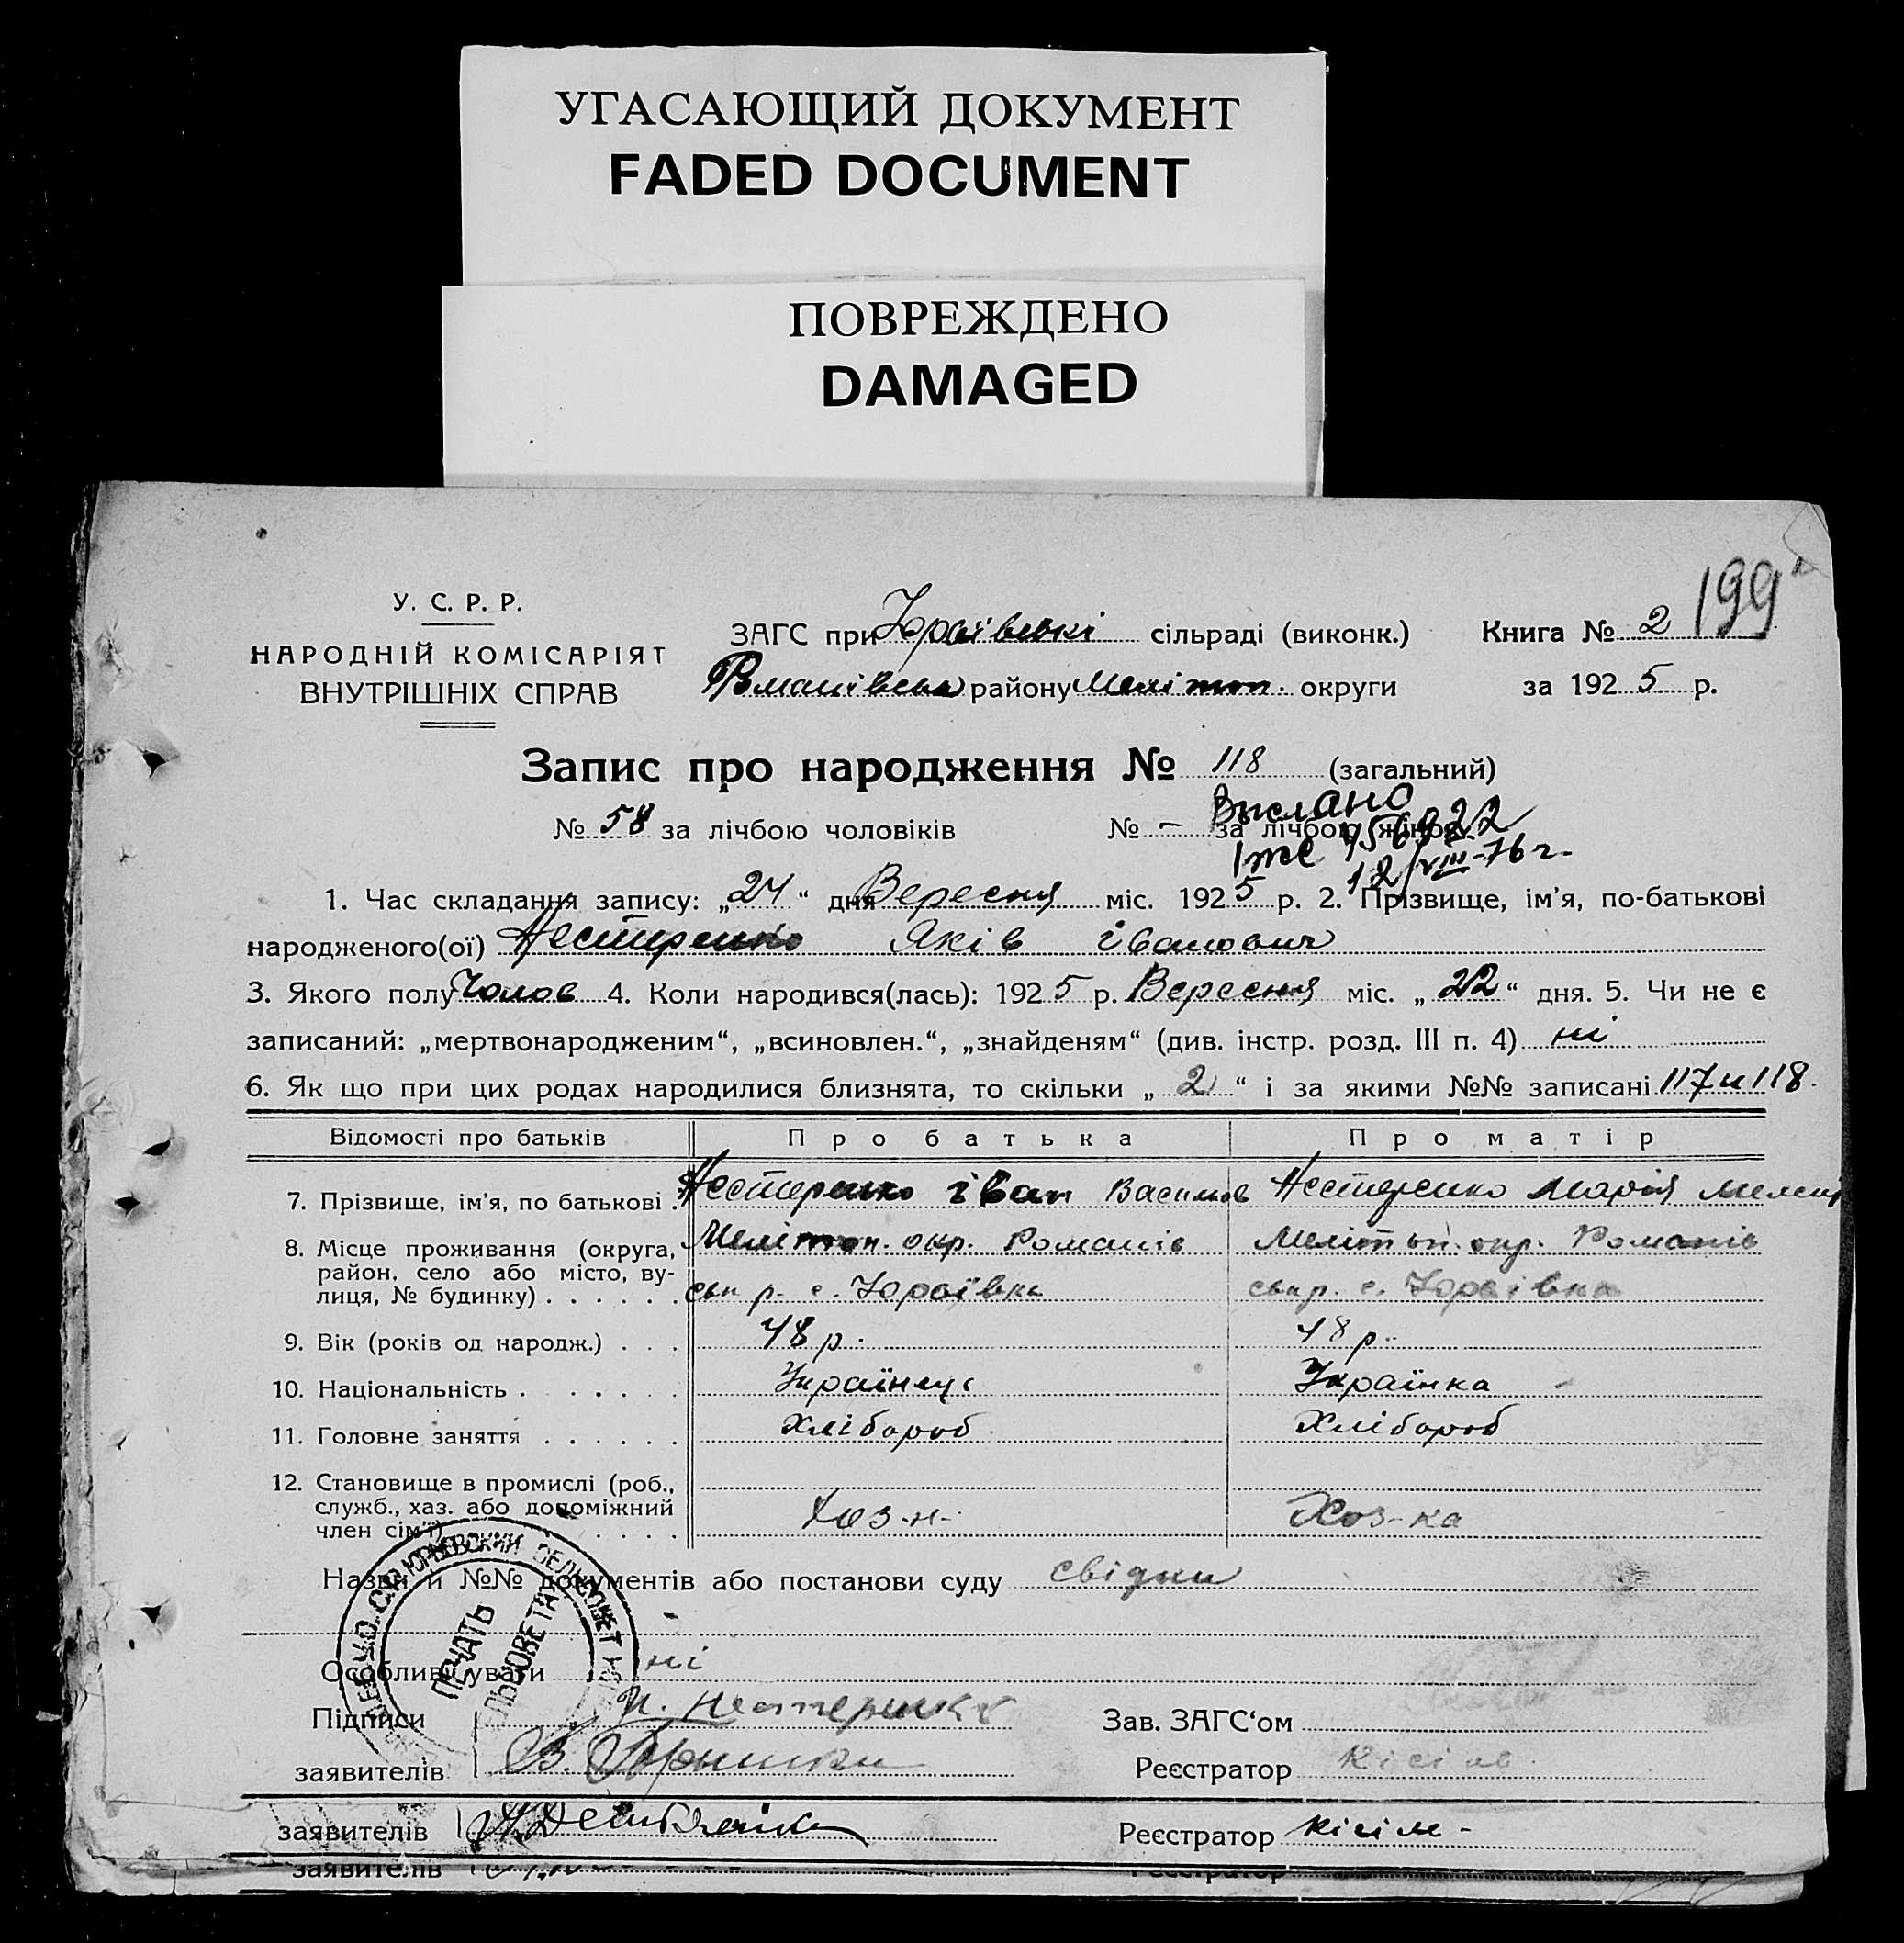 УГАСАЮЩИЙ ДОКУМЕНТ
FADED DOCUMENT
ПОВРЕЖДЕНО
DAMAGED
199
У. С. Р. Р.
НАРОДНІЙ КОМІСАРІЯТ
ВНУТРІШНІХ СПРАВ
ЗАГС при Юріївські сільраді (виконк.) Книга № 2
Романівськ району Мелітоп. округи за 1925 р.
Запис про народження № 118 (загальний)
№ 58 за лічбою чоловіків № – за лічбою жінок
Выслано
1же 456922
12/VIII-76 г.
1. Час складання запису: „24“ дня Вересня міс. 1925 р. 2. Прізвище, ім’я, по-батькові
народженого(ої) Нестеренко Яків Іванович
3. Якого полу Чолов 4. Коли народився(лась): 1925 р. Вересня міс. „22“ дня. 5. Чи не є
записаний: „мертвонародженим“, „всиновлен.“, „знайденям“ (див. інстр. розд. III п. 4) ні
6. Як що при цих родах народилися близнята, то скільки „2“ і за якими №№ записані 117 и 118.
Відомості про батьків Про батька Про матір
7. Прізвище, ім’я, по батькові . Нестеренко Іван Васильов Нестеренко Марія
8. Місце проживання (округа, Мелітоп. окр. Романів Мелітоп. окр. Романів
район, село або місто, ву-
лиця, № будинку) . . . . . . ськ р. с. Юріївка ськ р. с. Юріївка
9. Вік (років од народж.) . . . 48 р. 48 р.
10. Національність . . . . . . Українець Українка
11. Головне заняття . . . . . . Хлібороб Хлібороб
12. Становище в промислі (роб.,
служб., хаз. або допоміжний Хоз-н- Хоз-ка
член сім’ї)
Назви й №№ документів або постанови суду свідки
Особливі уваги ні
ПЕЧАТЬ
СЕЛЬСОВЕТА
Підписи И. Нестеренко Зав. ЗАГС‘ом
заявителів В. Реєстратор
заявителів Реєстратор
заявителів Реєстратор